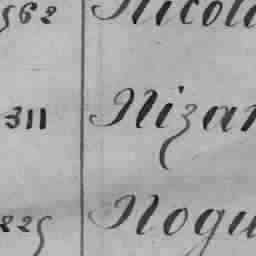 562 Nicol
311 Nizar
225 Nogu